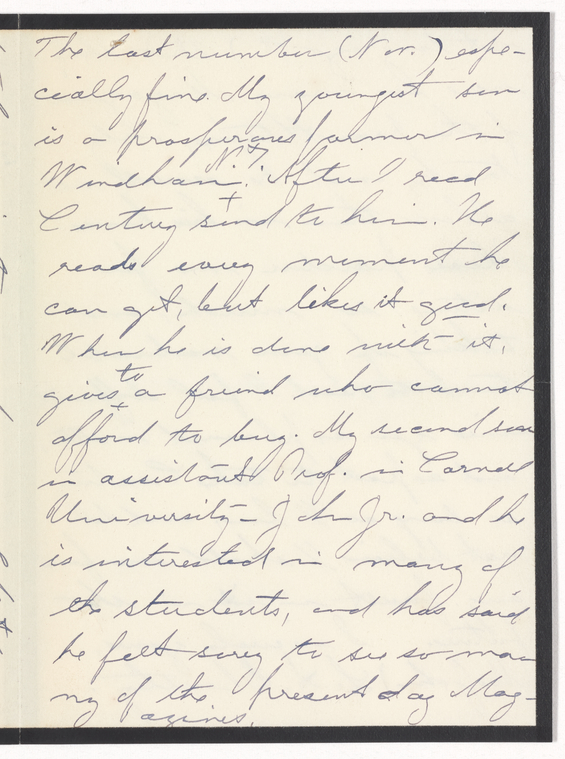 The last number (Nov.) espe-
cially fine. My youngest son
is a prosperous farmer in
N.Y.
Windham. After I read
Century send to him. He
reads every moment he
can get, but likes it good.
When he is done with it,
to
gives a friend who cannot
afford to buy. My second son
is assistant Prof. in Cornell
University - John Jr. and he
is interested in many of
the students, and has said
he felt sorry to see so man
ny of the present day Mag-
azines.